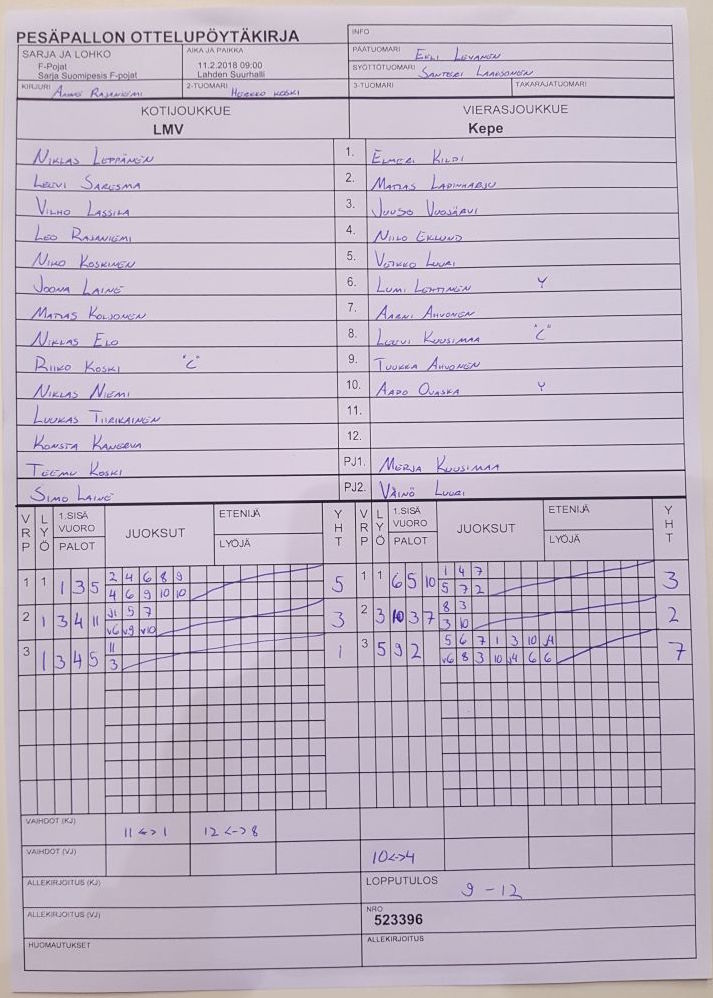 PESÄPALLON OTTELUPÖYTÄKIRJA
INFO
SARJA JA LOHKO
F-Pojat
Sarja Suomipesis F-pojat
AIKA JA PAIKKA
11.2.2018 09:00
Lahden Suurhalli
PÄÄTUOMARI
SYÖTTÖTUOMARI
KIRJURI Anne Rajaniemi
2-TUOMARI Herkko Koski
3-TUOMARI
TAKARAJATUOMARI
KOTIJOUKKUE
LMV
VIERASJOUKKUE
Kepe
Niklas Leppänen 1. Elmeri Kildi
Leevi Saresma 2. Matias Lapinharju
Vilho Lassila 3. Juuso Vuosjärvi
Leo Rajaniemi 4. Niilo Eklund
Niko Koskinen 5. Veikko Luuri
Joona Laine 6. Lumi Lehtinen Y
Matias Koljonen 7. Aarni Ahvonen
Niklas Elo 8. Leevi Kuusimaa "C"
Riiko Koski "C" 9. Tuukka Ahvonen
Niklas Niemi 10. Aapo Ovaska Y
Luukas Tiirikainen 11.
Konsta Kanerva 12.
Teemu Koski PJ1. Merja Kuusimaa
Simo Laine PJ2. Väinö Luuri
VRP LYÖ 1.SISÄ VUORO PALOT JUOKSUT ETENIJÄ LYÖJÄ YHT VRP LYÖ 1.SISÄ VUORO PALOT JUOKSUT ETENIJÄ LYÖJÄ YHT
1 1 1 3 5 2 4 6 8 9 5 1 1 6 5 10 1 4 7 3
4 6 9 10 10 5 7 2
2 1 3 4 11 J1 5 7 3 2 3 10 3 7 8 3 2
v6 v9 v10 3 10
3 1 3 4 5 11 1 3 5 9 2 5 6 7 1 3 10 J4 7
3 v6 8 3 10 J4 6 6
VAIHDOT (KJ) 11 <-> 1 12 <-> 8
VAIHDOT (VJ) 10<->4
ALLEKIRJOITUS (KJ)
LOPPUTULOS 9 - 12
ALLEKIRJOITUS (VJ)
NRO
523396
HUOMAUTUKSET
ALLEKIRJOITUS